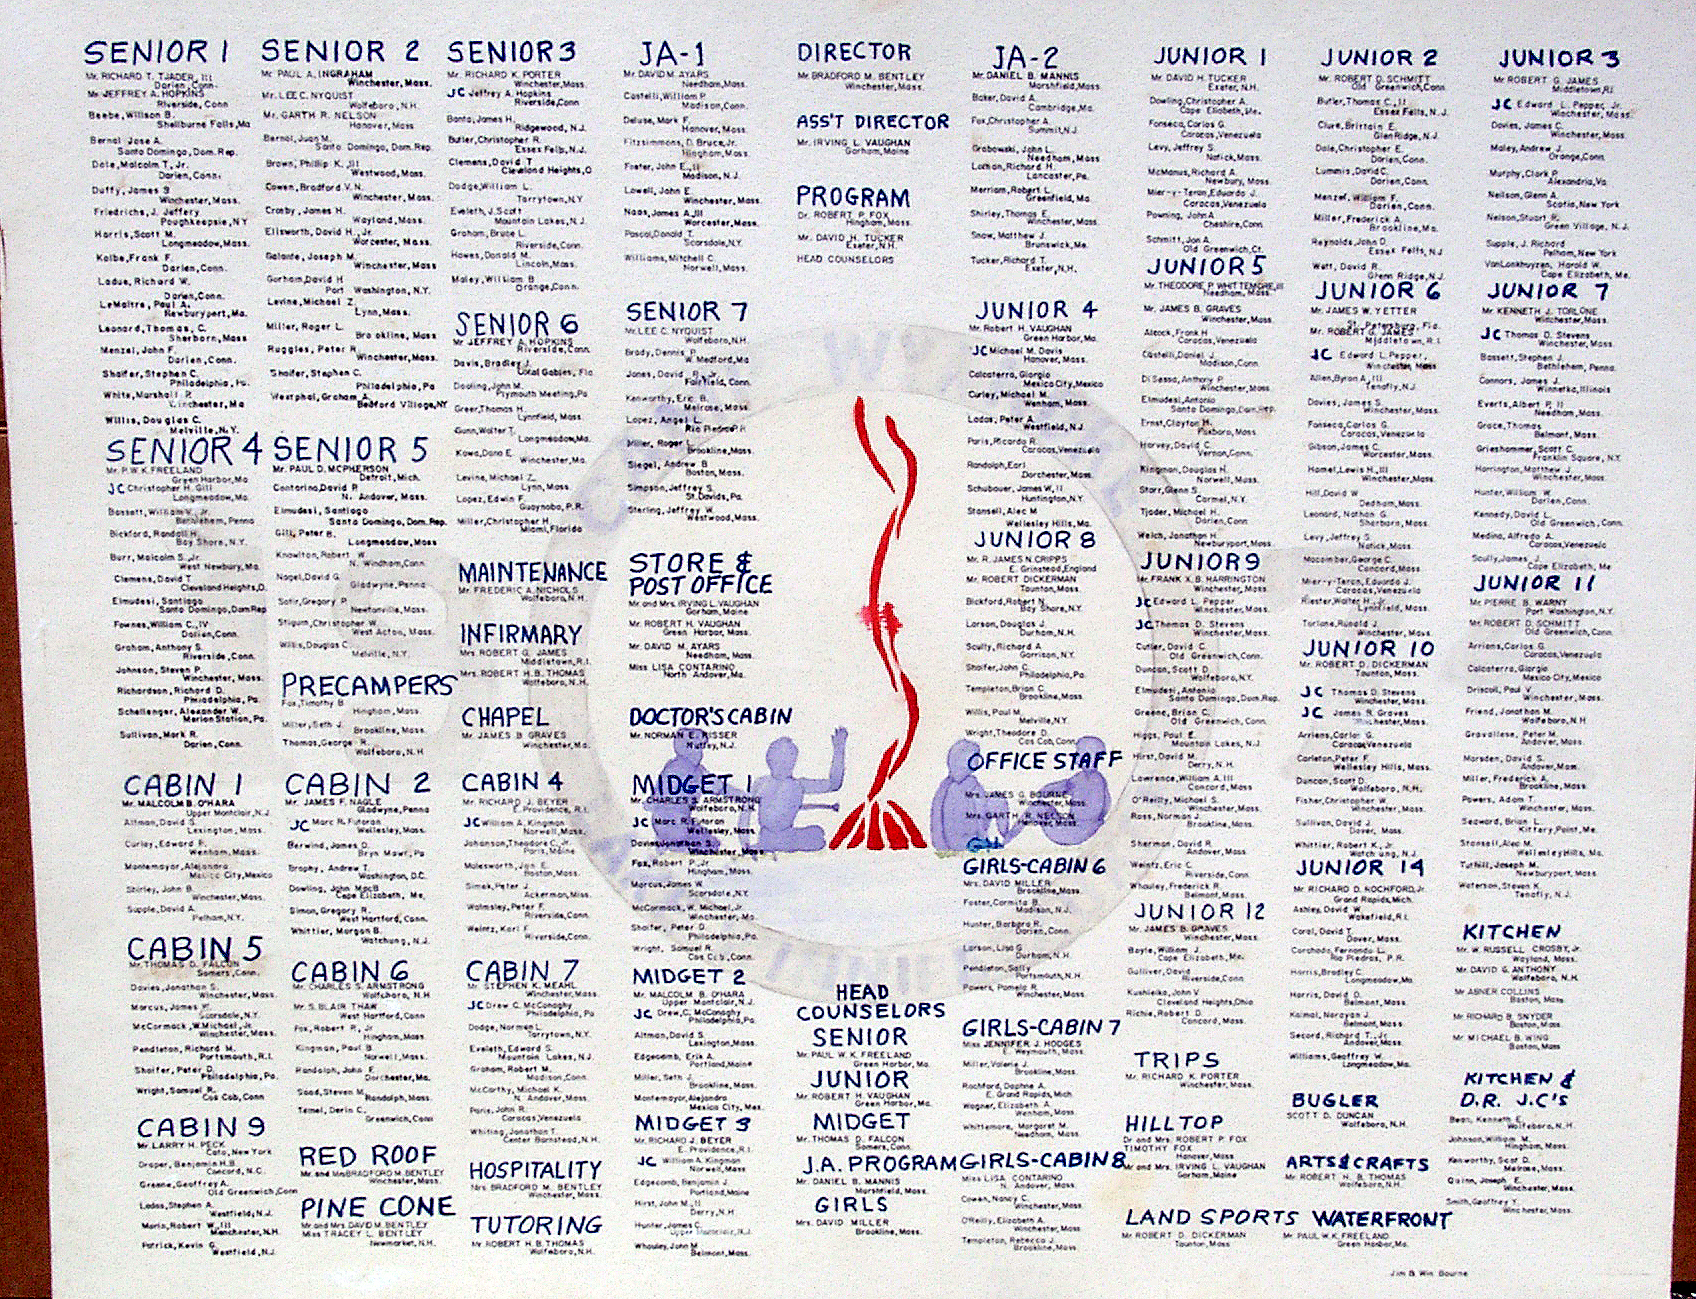 SENIOR 1
Mr. RICHARD T. TJADER, III
Darien, Conn.
Mr. JEFFREY A. HOPKINS
Riverside, Conn
Beebe, Willson B.
Shelburne Falls, Ma
Bernal Jose A.
Santo Domingo, Dom. Rep.
Dale, Malcolm T., Jr.
Darien, Conn.
Duffy, James B
Winchester, Mass.
Friedrichs, J. Jeffery
Poughkeepsie, NY
Harris, Scott M.
Longmeadow, Mass.
Kolbe, Frank F.
Darien, Conn.
Ladue, Richard W.
Darien, Conn.
LeMaitre, Paul A.
Newburyport, Ma.
Leonard, Thomas, C.
Sherborn, Mass
Menzel, John F.
Darien, Conn.
Shaifer, Stephen C.
Philadelphia, Pa.
White, Marshall P.
Winchester, Ma
Willis, Douglas C.
Melville, N.Y.
SENIOR 4
Mr. P.W.K. FREELAND
Green Harbor, Ma
JC Christopher H. Gill
Longmeadow, Ma.
Bassett, William V., Jr.
Bethlehem, Penna
Bickford, Randall H.
Bay Shore, N.Y.
Burr, Malcolm S., Jr.
West Newbury, Ma.
Clemens, David T.
Cleveland Heights, O.
Elmudesi, Santiago
Santo Domingo, Dom Rep
Fownes, William C., IV
Darien, Conn.
Graham, Anthony S.
Riverside, Conn.
Johnson, Steven P.
Winchester, Mass.
Richardson, Richard D.
Philadelphia, Pa.
Schellenger, Alexander W.
Merion Station, Pa.
Sullivan, Mark R.
Darien, Conn.
CABIN 1
Mr. MALCOLM B. O'HARA
Upper Montclair, N.J.
Altman, David S.
Lexington, Mass.
Curley, Edward F.
Wenham, Mass.
Montemayor, Alejandro
Mexico City, Mexico
Shirley, John B.
Winchester, Mass.
Supple, David A.
Pelham, N.Y.
CABIN 5
Mr. THOMAS D. FALCON
Somers, Conn.
Davies, Jonathan S.
Winchester, Mass.
Marcus, James W.
Scarsdale, N.Y.
McCormack, W. Michael, Jr.
Winchester, Mass.
Pendleton, Richard M.
Portsmouth, R.I.
Shaifer, Peter D.
Philadelphia, Pa.
Wright, Samuel R.
Cos Cob, Conn
CABIN 9
Mr. LARRY H. PECK
Cato, New York
Draper, Benjamin H.B.
Concord, N.C.
Greene, Geoffrey A.
Old Greenwich, Conn
Lados, Stephen A.
Westfield, N.J.
Marin, Robert W., III
Manchester, N.H.
Patrick, Kevin G.
Westfield, N.J.
SENIOR 2
Mr. PAUL A. INGRAHAM
Winchester, Mass.
Mr. LEE C. NYQUIST
Wolfeboro, N.H.
Mr. GARTH R. NELSON
Hanover, Mass
Bernal, Juan M.
Santo Domingo, Dom. Rep.
Brown, Phillip K., III
Westwood, Mass.
Cowen, Bradford V. N.
Winchester, Mass.
Crosby, James H.
Wayland, Mass.
Ellsworth, David H., Jr.
Worcester, Mass.
Galante, Joseph M.
Winchester, Mass
Gorham, David H
Port Washington, N.Y.
Levine, Michael Z.
Lynn, Mass.
Miller, Roger L.
Brookline, Mass.
Ruggles, Peter R.
Winchester, Mass.
Shaifer, Stephen C.
Philadelphia, Pa
Westphal, Graham A.
Bedford Village, NY
SENIOR 5
Mr. PAUL D. MCPHERSON
Detroit, Mich.
Contarino, David P.
N. Andover, Mass.
Elmudesi, Santiago
Santo Domingo, Dom. Rep.
Gill, Peter B.
Longmeadow, Mass
Knowlton, Robert W.
N. Windham, Conn
Nagel, David G.
Gladwyne, Penna
Satir, Gregory P.
Newtonville, Mass.
Stigum, Christopher W.
West Acton, Mass.
Willis, Douglas C.
Melville, N.Y.
PRECAMPERS
Fox, Timothy B
Hingham, Mass.
Miller, Seth J.
Brookline, Mass.
Thomas, George R.
Wolfeboro, N.H
CABIN 2
Mr. JAMES F. NAGLE
Gladwyne, Penna
JC Marc R. Futoran
Wellesley, Mass.
Berwind, James D.
Bryn Mawr, Pa
Brophy, Andrew T.
Washington, D.C.
Dowling, John MacB
Cape Elizabeth, Me.
Simon, Gregory R.
West Hartford, Conn.
Whittier, Morgan B.
Watchung, N.J.
CABIN 6
Mr. CHARLES S. ARMSTRONG
Wolfeboro, N.H
Mr. S. BLAIR THAW
West Hartford, Conn
Fox, Robert P., Jr
Hingham, Mass
Kingman, Paul B.
Norwell, Mass.
Randolph, John F.
Dorchester, Ma.
Saad, Steven M.
Randolph, Mass.
Temel, Derin C.
Greenwich, Conn
RED ROOF
Mr. and Mrs BRADFORD M. BENTLEY
Winchester, Mass.
PINE CONE
Mr and Mrs DAVID M. BENTLEY
Miss TRACEY L. BENTLEY
Newmarket, N.H.
SENIOR 3
Mr. RICHARD K. PORTER
Winchester, Mass.
JC Jeffrey A. Hopkins
Riverside, Conn
Banta, James H.
Ridgewood, N.J.
Butler, Christopher R.
Essex Fells, N.J.
Clemens, David T
Cleveland Heights, O
Dodge, William L.
Tarrytown, N.Y
Eveleth, J. Scott
Mountain Lakes, N.J.
Graham, Bruce L.
Riverside, Conn.
Howes, Donald M.
Lincoln, Mass.
Maley, William B
Orange, Conn.
SENIOR 6
Mr JEFFREY A. HOPKINS
Riverside, Conn.
Davis, Bradley J.
Coral Gables, Fla
Dooling, John M.
Plymouth Meeting, Pa
Greer, Thomas H.
Lynnfield, Mass.
Gunn, Walter T.
Longmeadow, Ma.
Kowa, Dana E.
Winchester, Ma.
Levine, Michael Z.
Lynn, Mass.
Lopez, Edwin F.
Guaynabo, P.R.
Miller, Christopher H
Miami, Florida
MAINTENANCE
Mr. FREDERIC A. NICHOLS
Wolfeboro, N.H.
INFIRMARY
Mrs ROBERT G. JAMES
Middletown, R.I.
Mrs. ROBERT H.B. THOMAS
Wolfeboro, N.H.
CHAPEL
Mr. JAMES B GRAVES
Winchester, Ma.
CABIN 4
Mr. RICHARD J. BEYER
E. Providence, R.I.
JC William A. Kingman
Norwell, Mass.
Johanson, Theodore C., Jr.
Paris, Maine
Molesworth, Jon E.
Boston, Mass.
Simek, Peter J.
Ackerman, Miss.
Walmsley, Peter F.
Riverside, Conn.
Weintz, Karl F.
Riverside, Conn.
CABIN 7
Mr. STEPHEN K. MEAHL
Winchester, Mass.
JC Drew C. McConaghy
Philadelphia, Pa
Dodge, Norman L.
Tarrytown, N.Y.
Eveleth, Edward S.
Mountain Lakes, N.J
Graham, Robert M.
Madison, Conn.
McCarthy, Michael K.
N. Andover, Mass
Paris, John R.
Caracas, Venezuela
Whiting, Jonathan T.
Center Barnstead, N.H.
HOSPITALITY
Mrs BRADFORD M. BENTLEY
Winchester, Mass.
TUTORING
Mr ROBERT H.B. THOMAS
Wolfeboro, N.H.
JA-1
Mr. DAVID M. AYARS
Needham, Mass.
Castelli, William P.
Madison, Conn.
Deluse, Mark F.
Hanover, Mass.
Fitzsimmons, D. Bruce, Jr.
Hingham, Mass.
Foster, John E., II
Madison, N.J.
Lowell, John E.
Winchester, Mass.
Naas, James A., III
Worcester, Mass.
Pascal, Donald T.
Scarsdale, N.Y.
Williams, Mitchell C.
Norwell, Mass.
SENIOR 7
Mr. LEE C. NYQUIST
Wolfeboro, N.H.
Brady, Dennis P.
W. Medford, Ma
Jones, David R., Jr.
Fairfield, Conn.
Kenworthy, Eric B.
Melrose, Mass.
Lopez, Angel L.
Rio Piedras P.R
Miller, Roger L.
Brookline, Mass.
Siegel, Andrew B
Boston, Mass.
Simpson, Jeffrey S.
St. Davids, Pa.
Sterling, Jeffrey W.
Westwood, Mass.
STORE & POST OFFICE
Mr. and Mrs. IRVING L. VAUGHAN
Gorham, Maine
Mr. ROBERT H. VAUGHAN
Green Harbor, Mass.
Mr. DAVID M. AYARS
Needham, Mass.
Miss LISA CONTARINO
North Andover, Ma.
DOCTOR'S CABIN
Mr. NORMAN E. RISSER
Nutley, N.J.
MIDGET 1
Mr. CHARLES S. ARMSTRONG
Wolfeboro, N.H.
JC Marc R. Futoran
Wellesley, Mass.
Davies, Jonathan S.
Winchester, Mass
Fox, Robert P., Jr
Hingham, Mass.
Marcus, James W.
Scarsdale, N.Y.
McCormack, W. Michael, Jr.
Winchester, Ma.
Shaifer, Peter D.
Philadelphia, Pa.
Wright, Samuel R.
Cos Cob, Conn.
MIDGET 2
Mr. MALCOLM B. O'HARA
Upper Montclair, N.J.
JC Drew, C. McConaghy
Philadelphia, Pa.
Altman, David S.
Lexington, Mass.
Edgecomb, Erik A.
Portland, Maine
Miller, Seth J.
Brookline, Mass.
Montemayor, Alejandro
Mexico City, Mex.
MIDGET 3
Mr. RICHARD J. BEYER
E. Providence, R.I.
JC William A. Kingman
Norwell, Mass
Edgecomb, Benjamin J.
Portland, Maine
Hirst, John M., II
Derry, N.H.
Hunter, James C.
Upper Montclair, N.J.
Whouley, John M
Belmont, Mass.
DIRECTOR
Mr. BRADFORD M. BENTLEY
Winchester, Mass.
ASS'T DIRECTOR
Mr. IRVING L. VAUGHAN
Gorham, Maine
PROGRAM
Dr. ROBERT P. FOX
Hingham, Mass.
Mr. DAVID H. TUCKER
Exeter, N.H.
HEAD COUNSELORS
HEAD COUNSELORS
SENIOR
Mr. PAUL W. K. FREELAND
Green Harbor, Ma.
JUNIOR
Mr. ROBERT H. VAUGHAN
Green Harbor, Ma.
MIDGET
Mr. THOMAS D. FALCON
Somers, Conn.
J.A. PROGRAM
Mr. DANIEL B. MANNIS
Marshfield, Mass.
GIRLS
Mrs. DAVID MILLER
Brookline, Mass.
JA-2
Mr. DANIEL B. MANNIS
Marshfield, Mass
Baker, David A.
Cambridge, Ma.
Fox, Christopher A.
Summit, N.J
Grabowski, John L.
Needham, Mass
Lachon, Richard H.
Lancaster, Pa.
Merriam, Robert L.
Greenfield, Ma.
Shirley, Thomas E.
Winchester, Mass.
Snow, Matthew J.
Brunswick, Me.
Tucker, Richard T.
Exeter, N.H.
JUNIOR 4
Mr. Robert H. VAUGHAN
Green Harbor, Ma.
JC Michael M. Davis
Hanover, Mass.
Calcaterra, Giorgio
Mexico City, Mexico
Curley, Michael M.
Wenham, Mass.
Lados, Peter A.
Westfield, N.J
Paris, Ricardo R.
Caracas, Venezuela
Randolph, Earl
Dorchester, Mass.
Schubauer, James W., II
Huntington, N.Y.
Stansell, Alec M
Wellesley Hills, Ma.
JUNIOR 8
Mr. R. JAMES N. CRIPPS
E. Grinstead, England
Mr. ROBERT DICKERMAN
Taunton, Mass.
Bickford, Robert N.
Bay Shore, N.Y.
Larson, Douglas J.
Durham, N.H.
Scully, Richard A
Garrison, N.Y.
Shaifer, John C.
Philadelphia, Pa.
Templeton, Brian C.
Brookline, Mass.
Willis, Paul M.
Melville, N.Y.
Wright, Theodore D.
Cos Cob, Conn.
OFFICE STAFF
Mrs. JAMES G. BOURNE
Winchester, Mass.
Mrs. GARTH R. NELSON
Hanover, Mass.
GIRLS-CABIN 6
Mrs. DAVID MILLER
Brookline, Mass.
Foster, Cornita B.
Madison, N.J.
Hunter, Barbara R.
Darien, Conn.
Larson, Lisa G.
Durham, N.H.
Pendleton, Sally
Portsmouth, N.H.
Powers, Pamela R.
Winchester, Mass.
GIRLS-CABIN 7
Miss JENNIFER J. HODGES
E. Weymouth, Mass.
Miller, Valerie J.
Brookline, Mass.
Rochford, Daphne A.
E. Grand Rapids, Mich
Wagner, Elizabeth A.
Wenham, Mass.
Whittemore, Margaret M.
Needham, Mass.
GIRLS-CABIN 8
Miss LISA CONTARINO
N. Andover, Mass.
Cowen, Nancy C.
Winchester, Mass.
O'Reilly, Elizabeth A.
Winchester, Mass.
Templeton, Rebecca J.
Brookline, Mass.
JUNIOR 1
Mr. DAVID H. TUCKER
Exeter, N.H.
Dowling, Christopher A.
Cape Elizabeth, Me.
Fonseca, Carlos G.
Caracas, Venezuela
Levy, Jeffrey S.
Natick, Mass.
McManus, Richard A.
Newbury, Mass.
Mier-y-Teran, Eduardo J.
Caracas, Venezuela
Pawning, John A
Cheshire, Conn
Schmitt, Jon A.
Old Greenwich, Ct.
JUNIOR 5
Mr. THEODORE P. WHITTEMORE, III
Needham, Mass.
Mr. JAMES B. GRAVES
Winchester, Mass.
Alcock, Frank H
Caracas, Venezuela
Castelli, Daniel J.
Madison, Conn
Di Sessa, Anthony P.
Winchester, Mass.
Elmudesi, Antonio
Santo Domingo, Dom. Rep.
Ernst, Clayton H.
Foxboro, Mass.
Harvey, David C.
Vernon, Conn.
Kingman, Douglas H.
Norwell, Mass.
Starr, Glenn S.
Carmel, N.Y.
Tjader, Michael H.
Darien, Conn
Welch, Jonathan H.
Newburyport, Mass.
JUNIOR 9
Mr. FRANK X.B. HARRINGTON
Winchester, Mass.
JC Edward L. Pepper
Winchester, Mass.
JC Thomas D. Stevens
Winchester, Mass.
Cutler, David C.
Old Greenwich, Conn.
Duncan, Scott D.
Wolfeboro, N.Y.
Elmudesi, Antonio
Santo Domingo, Dom. Rep.
Greene, Brian C.
Old Greenwich, Conn.
Higgs, Paul E.
Mountain Lakes, N.J
Hirst, David M.
Derry, N.H.
Lawrence, William A. III
Concord, Mass
O'Reilly, Michael S.
Winchester, Mass.
Ross, Norman J.
Brookline, Mass.
Sherman, David R.
Andover, Mass
Weintz, Eric C.
Riverside, Conn.
Whouley, Frederick R.
Belmont, Mass.
JUNIOR 12
Mr. JAMES B. GRAVES
Winchester, Mass.
Bayle, William J.
Cape Elizabeth, Me.
Gulliver, David
Riverside, Conn
Kushleika, John V
Cleveland Heights, Ohio
Richie, Robert D.
Concord, Mass.
TRIPS
Mr. RICHARD K. PORTER
Winchester, Mass.
HILLTOP
Dr and Mrs. ROBERT P. FOX
TIMOTHY FOX
Hanover, Mass
Mr and Mrs. IRVING L. VAUGHAN
Gorham, Maine
LAND SPORTS
Mr ROBERT D. DICKERMAN
Taunton, Mass
JUNIOR 2
Mr. ROBERT D. SCHMITT
Old Greenwich, Conn
Butler, Thomas C., II
Essex Fells, N.J.
Clure, Brittain E.
Glen Ridge, N.J
Dale, Christopher E.
Darien, Conn.
Lummis, David C.
Darien, Conn.
Menzel, William F.
Darien, Conn.
Miller, Frederick A.
Brookline, Ma.
Reynolds, John D.
Essex Fells, N.J
Watt, David R.
Glenn Ridge, N.J.
JUNIOR 6
Mr. JAMES W. YETTER
St. Petersburg, Fla.
Mr. ROBERT G. JAMES
Middletown, R.I.
JC Edward L. Pepper,
Winchester, Mass
Allen, Byron A., III
Tenafly, N.J.
Davies, James S.
Winchester, Mass.
Fonseca, Carlos G.
Caracas, Venezuela
Gibson, James C.
Worcester, Mass.
Hamel, Lewis H., III
Winchester, Mass.
Hill, David W
Dedham, Mass.
Leonard, Nathan G.
Sherborn, Mass.
Levy, Jeffrey S.
Natick, Mass.
Macomber, George C.
Concord, Mass
Mier-y-Teran, Eduardo J.
Caracas, Venezuela
Riester, Walter H., Jr.
Lynnfield, Mass.
Torlone, Ronald J
Winchester, Mass.
JUNIOR 10
Mr. ROBERT D. DICKERMAN
Taunton, Mass.
JC Thomas D. Stevens
Winchester, Mass.
JC James B. Graves
Winchester, Mass.
Arriens, Carlos G.
Caracas, Venezuela
Carleton, Peter M.
Wellesley Hills, Mass.
Duncan, Scott D.
Wolfeboro, N.H.
Fisher, Christopher W
Winchester, Mass.
Sullivan, David J
Dover, Mass.
Whittier, Robert K., Jr.
Watchung, N.J.
JUNIOR 14
Mr RICHARD D. ROCHFORD, Jr.
Grand Rapids, Mich.
Ashley, David W.
Wakefield, R.I.
Coral, David T.
Dover, Mass.
Corchado, Fernando L.
Rio Piedras, P.R.
Harris, Bradley C.
Longmeadow, Ma.
Harris, David D.
Belmont, Mass.
Kaimal, Narayan J.
Belmont, Mass
Secord, Richard T., Jr
Andover, Mass
Williams, Geoffrey W.
Longmeadow, Ma.
BUGLER
SCOTT D. DUNCAN
Wolfeboro, N.H.
ARTS & CRAFTS
Mr ROBERT H. B. THOMAS
Wolfeboro, N.H.
WATERFRONT
Mr. PAUL W.K. FREELAND
Green Harbor, Ma.
JUNIOR 3
Mr ROBERT G. JAMES
Middletown, R.I
JC Edward L. Pepper, Jr
Winchester, Mass.
Davies, James C.
Winchester, Mass.
Maley, Andrew J
Orange, Conn.
Murphy, Clark P.
Alexandria, Va
Neilson, Glenn A
Scotia, New York
Nelson, Stuart R.
Green Village, N.J.
Supple, J. Richard
Pelham, New York
VanLonkhuyzen, Harold W.
Cape Elizabeth, Me.
JUNIOR 7
Mr KENNETH J. TORLONE
Winchester, Mass.
JC Thomas D. Stevens
Winchester, Mass.
Bassett, Stephen J.
Bethlehem, Penna.
Connors, James J.
Winnetka, Illinois
Everts, Albert P., II
Needham, Mass.
Grace, Thomas
Belmont, Mass.
Grieshammer, Scott C.
Franklin Square, N.Y.
Harrington, Matthew J.
Winchester, Mass.
Hunter, William W.
Darien, Conn.
Kennedy, David L.
Old Greenwich, Conn.
Medina, Alfredo A.
Caracas, Venezuela
Scully, James J.
Cape Elizabeth, Me
JUNIOR 11
Mr. PIERRE B. WARNY
Port Washington, N.Y.
Mr ROBERT D. SCHMITT
Old Greenwich, Conn.
Arriens, Carlos G.
Caracas, Venezuela
Calcaterra, Giorgio
Mexico City, Mexico
Driscoll, Paul V.
Winchester, Mass.
Friend, Jonathan M.
Wolfeboro, N.H
Gravallese, Peter M.
Andover, Mass.
Marsden, David S.
Andover, Mass.
Miller, Frederick A.
Brookline, Mass.
Powers, Adam T.
Winchester, Mass.
Seaward, Brian L.
Kittery Point, Me.
Stansell, Alec M
Wellesley Hills, Ma.
Tuthill, Joseph M.
Newburyport, Mass.
Waterson, Steven K.
Tenafly, N.J.
KITCHEN
Mr. W. RUSSELL CROSBY, Jr.
Wayland, Mass.
Mr. DAVID G. ANTHONY
Wolfeboro, N.H.
Mr ABNER COLLINS
Boston, Mass
Mr RICHARD B. SNYDER
Boston, Mass.
Mr MICHAEL B. WING
Boston, Mass
KITCHEN & D.R. J.C'S
Bean, Kenneth E.
Wolfeboro, N.H.
Johnson, William M.
Hingham, Mass.
Kenworthy, Scot D.
Melrose, Mass.
Quinn, Joseph E.
Winchester, Mass.
Smith, Geoffrey Y.
Winchester, Mass.
Jim & Win Bourne